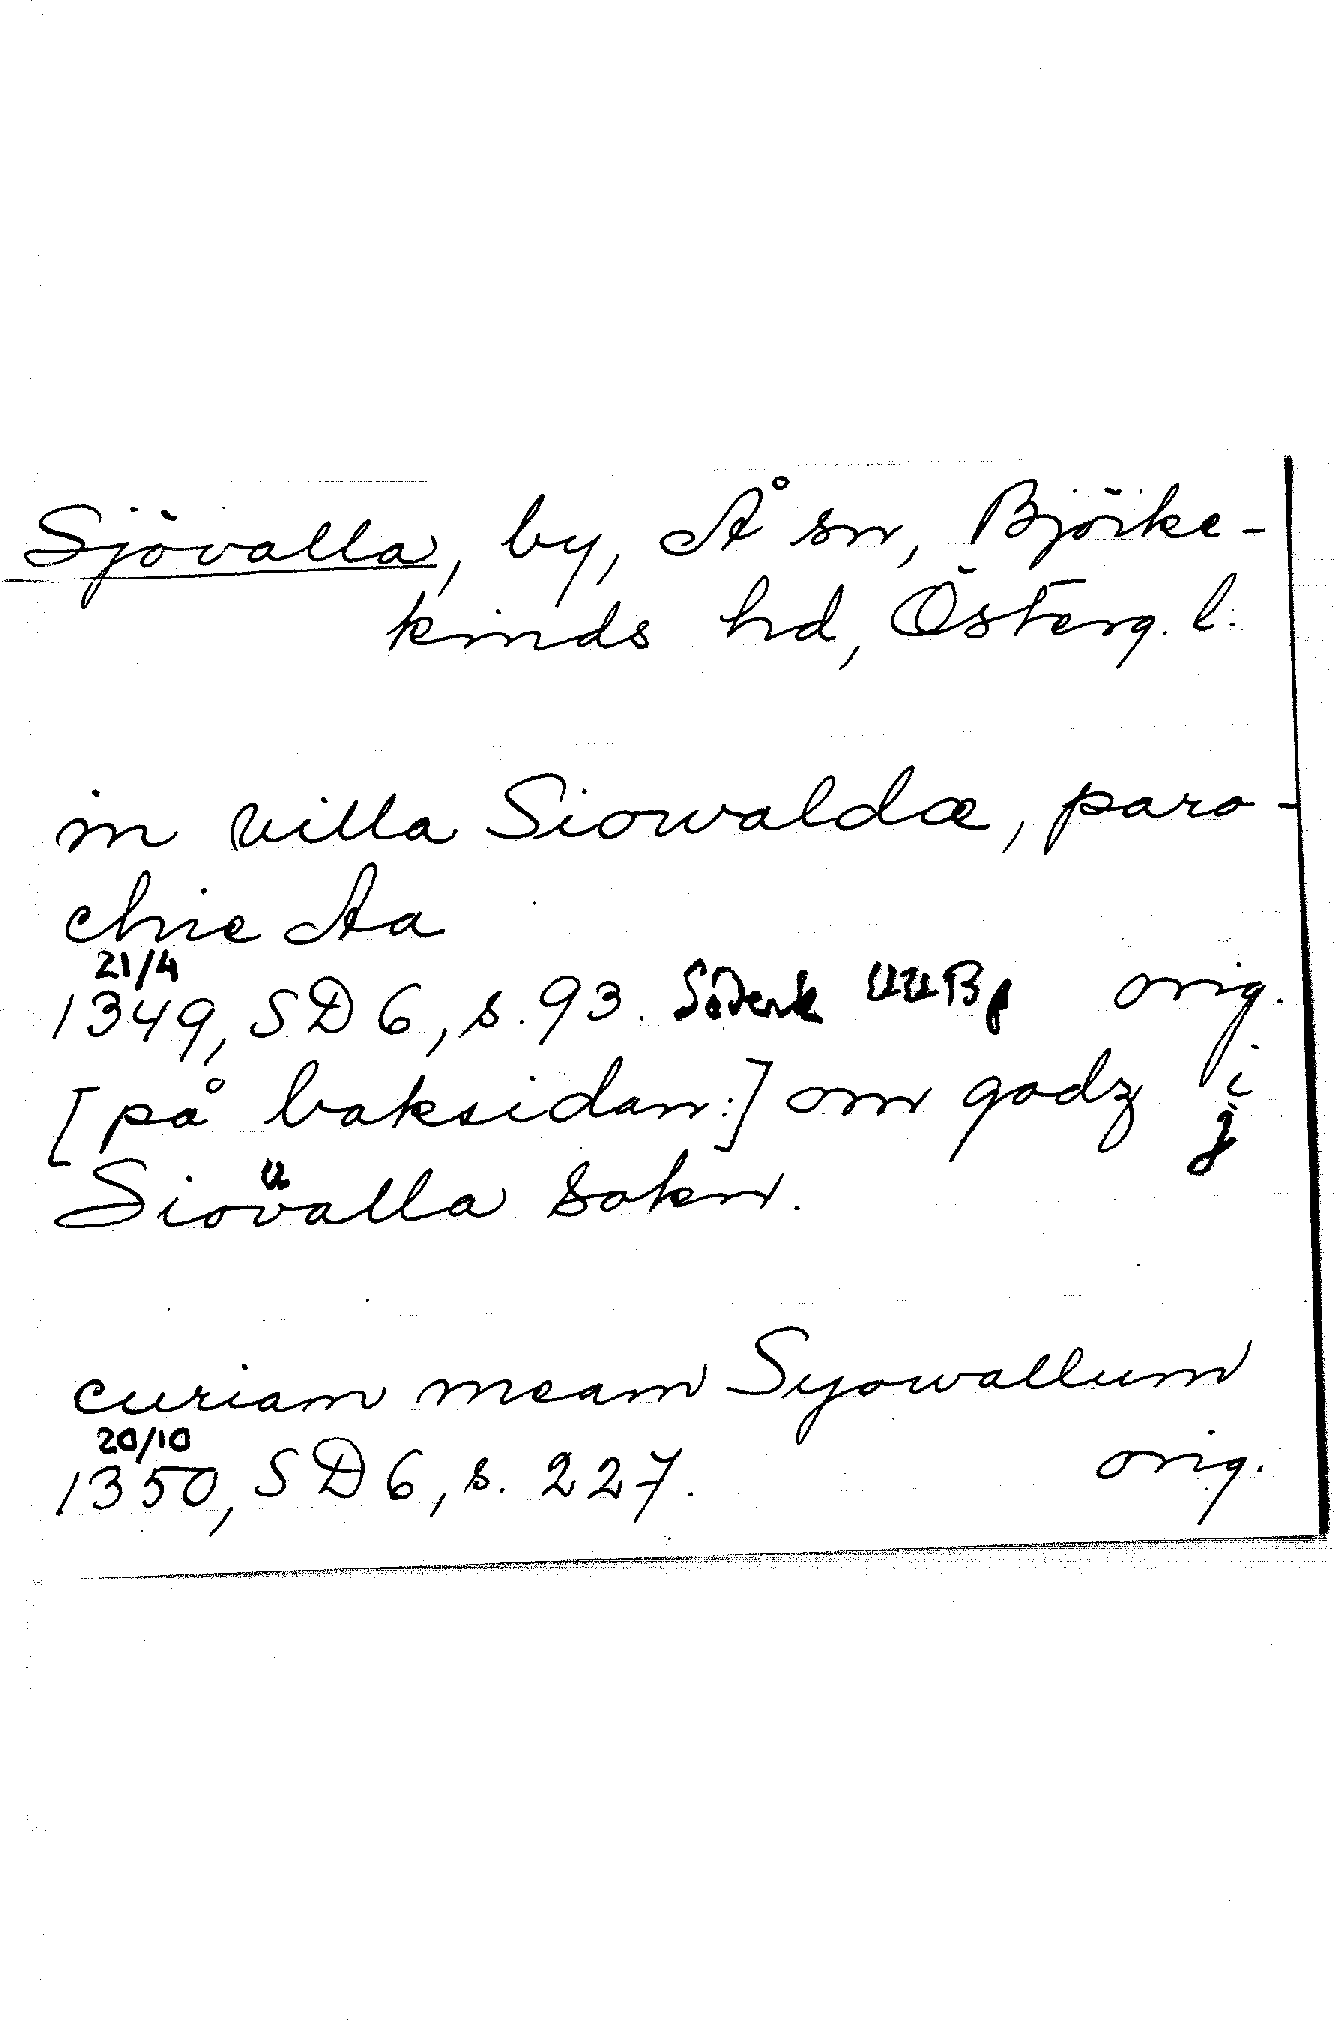 Sjövalla, by, Å sn, Björke-
kinds hd, Österg. l.
in villa Siowaldæ, paro-
chie Aa
21/4
1349, SD 6, s. 93. orig.
[på baksidan:] om godz i
j
u
Siovalla sokn.
curiam meam Syowallum
20/10
1350, SD 6, s. 227. orig.